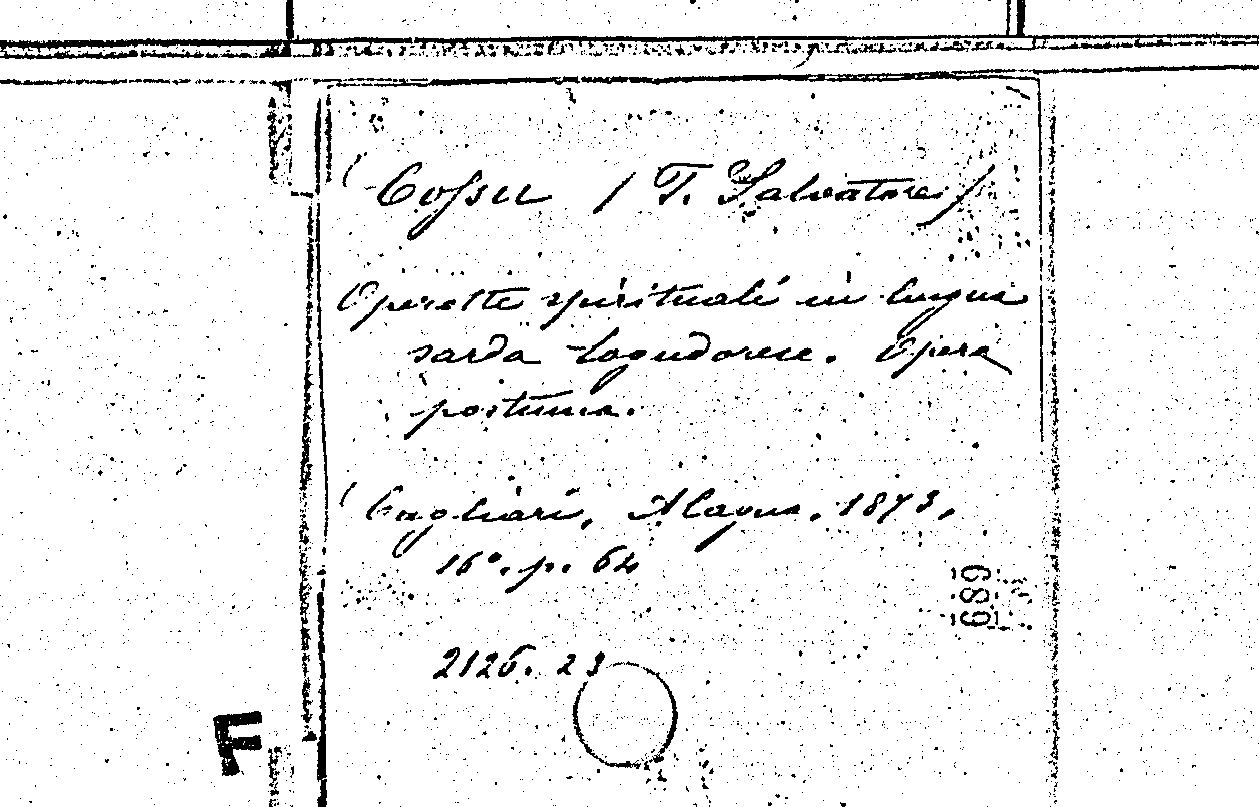 Cossu / T. Salvatore /
Operette spirituali in lingua
sarda logudorese. Opera
postuma.
Cagliari, Alagna, 1873,
16°. p. 64
689
2126. 23
F